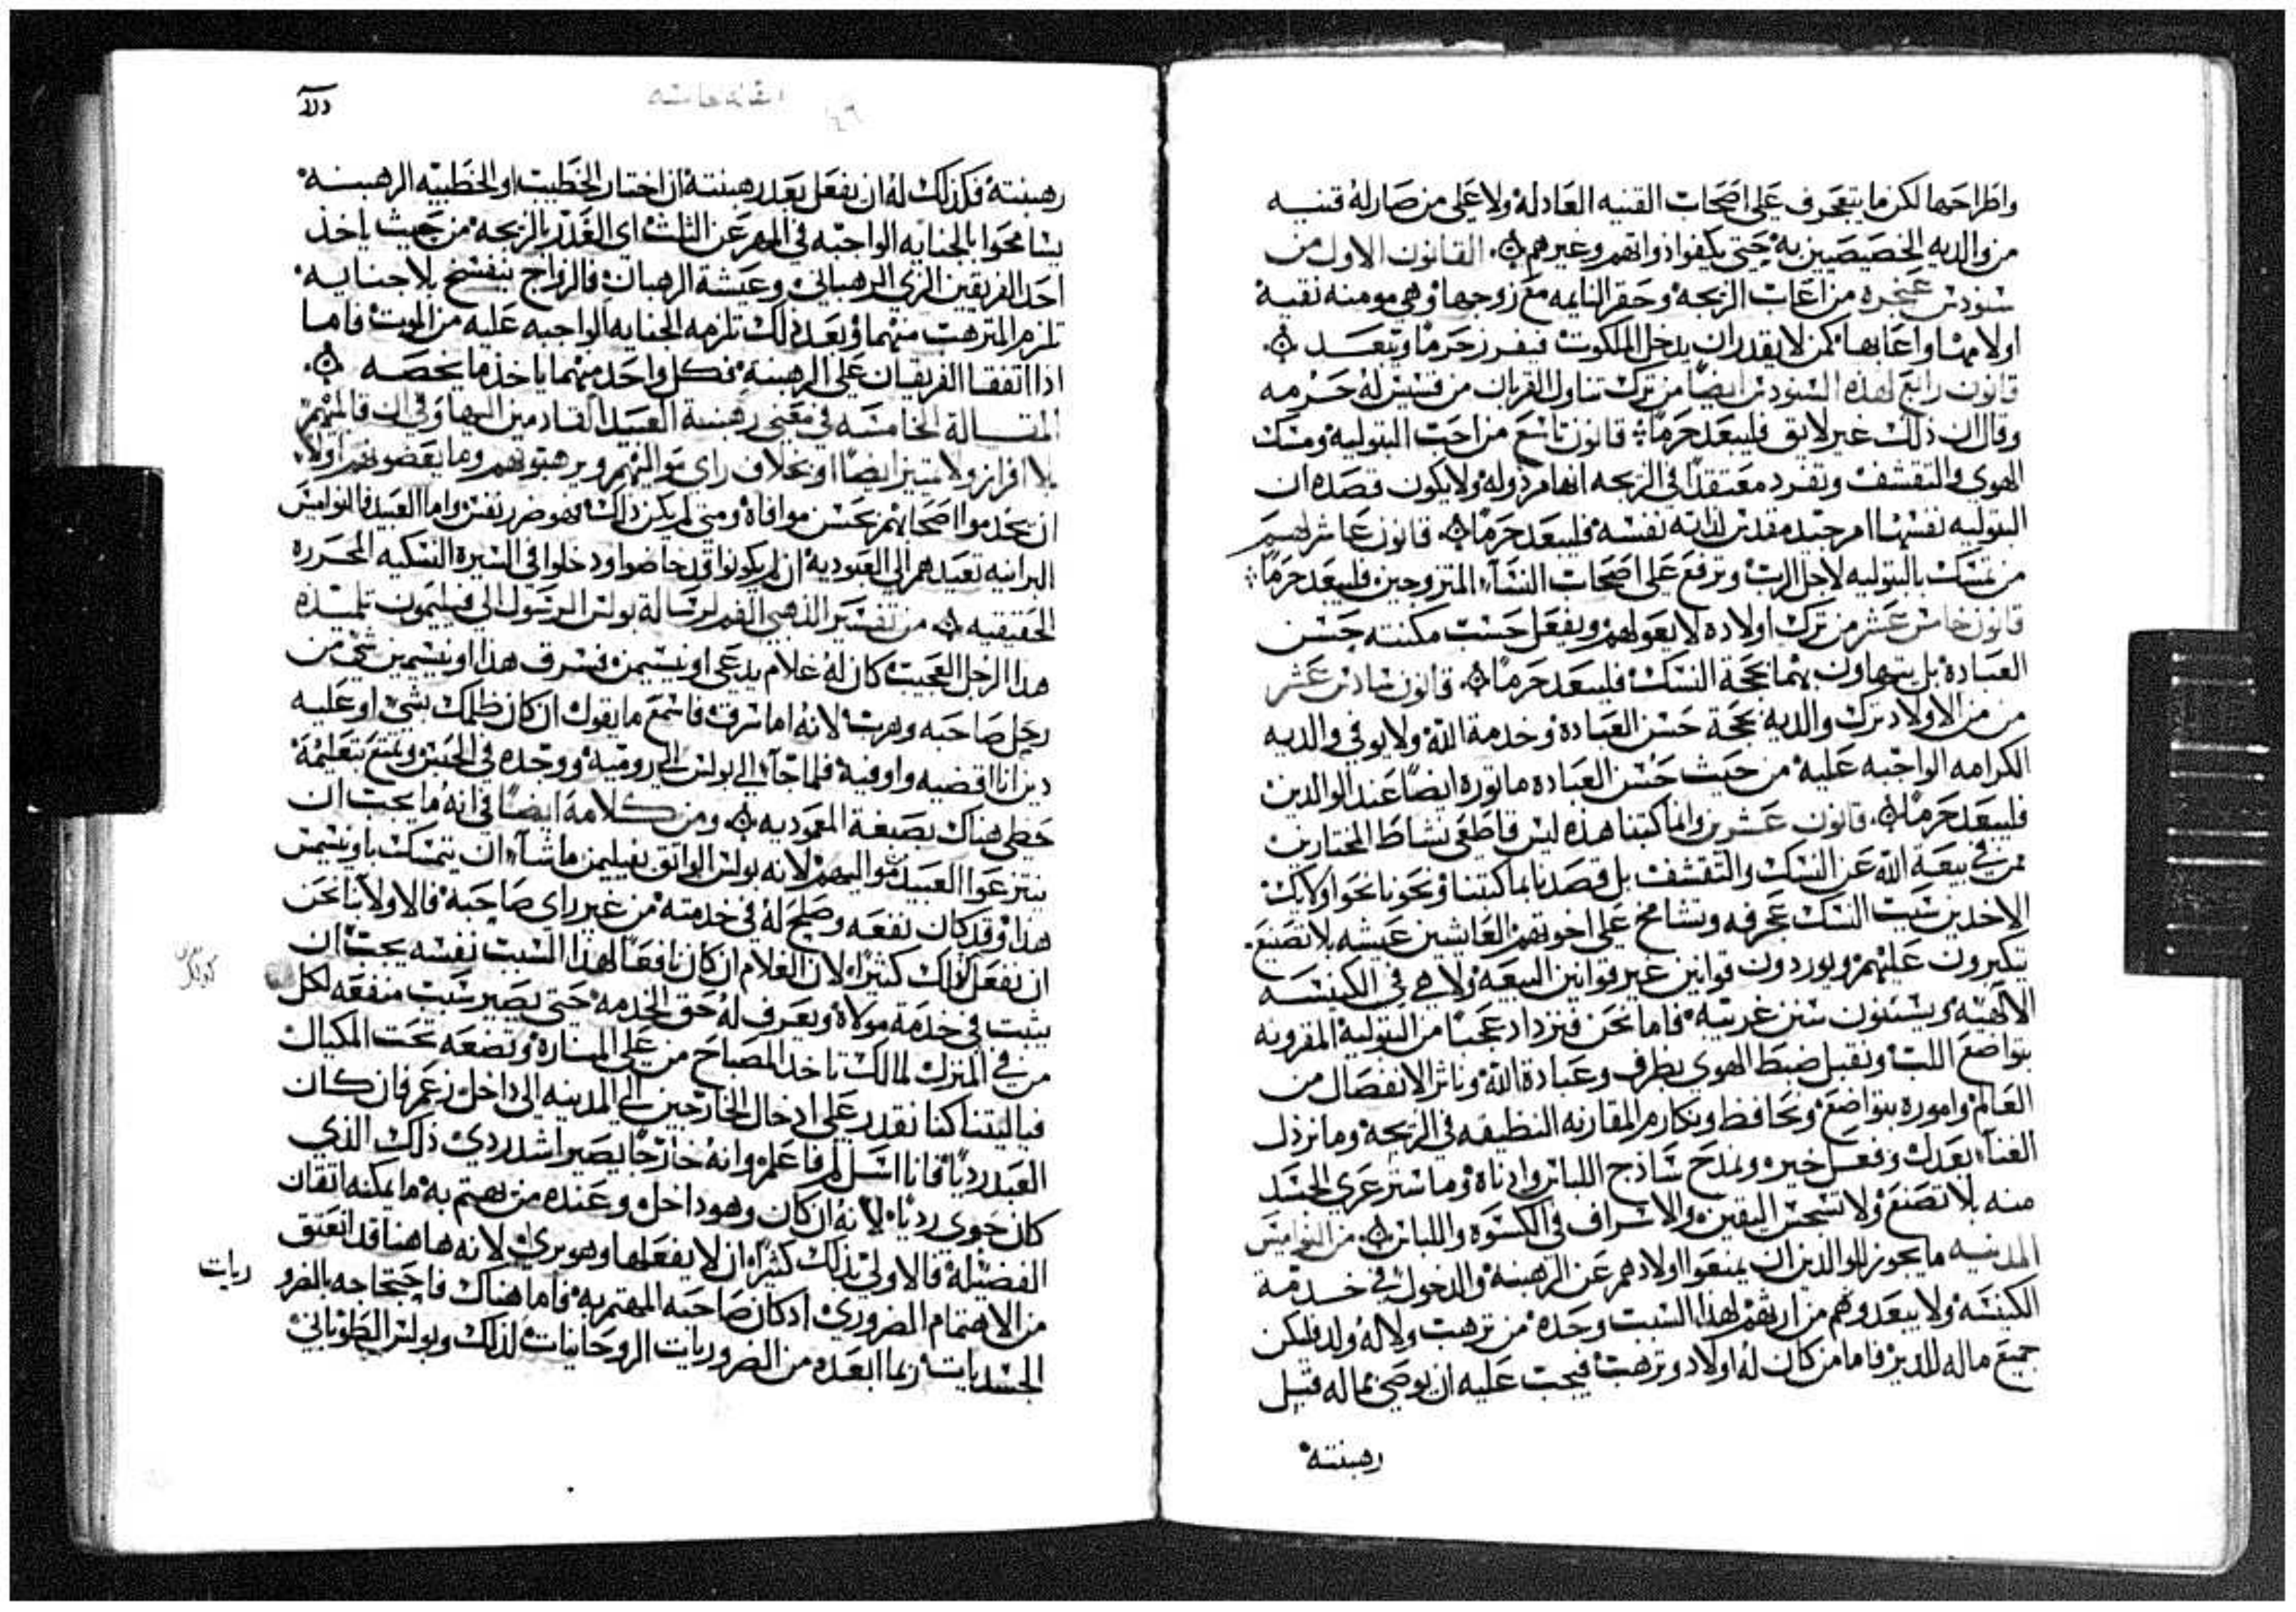 واطراحها لكن ما يتعجرف على اصحاب القنيه العادله ولا على من صار له قنيه
من والديه الخصيصين به حتى يكفوا ذواتهم وغيرهم القانون الاول من
سنودس عنجره من اعاب الزيجه وحقر النايمه مع زوجها وهي مومنه نقيه
اولامها واعابها كمن لا يقدر ان يدخل الملكوت فيفرز حرما ويبعد
قانون رابع لهذه السنودس ايضا من ترك تناول القربان من قسيس له حرمه
وقال ان ذلك غير لايق فليبعد حرما قانون تاسع من احب البتوليه ومسك
الهوى والتقشف وتفرد معتقدا في الزيجه انها مرذوله ولا يكون قصده ان
البتوليه نفسها امر جيد مقدس لذاته نفسه فليبعد حرما قانون عاشر لهم
من تمسك بالبتوليه لاجل الرب وترفع على اصحاب النساء المتزوجين فليبعد حرما
قانون خامس عشر من ترك اولاده لا يعولهم ويفعل حسب مكنته حسن
العباده بل يتهاون بهما بحجة النسك فليبعد حرما قانون سادس عشر
من من الاولاد ترك والديه بحجة حسن العباده وخدمة الله ولا يوفي والديه
الكرامه الواجبه عليه من حيث حسن العباده ماثوره ايضا عند الوالدين
فليبعد حرما قانون عشرين وانما كتبنا هذه ليس قاطعي نشاط المختارين
ممن في بيعة الله عن النسك والتقشف بل قصدنا بما كتبنا ونحونا نحو اولايك
الاخدين سبب النسك عجرفه وتشامخ على اخوتهم العايشين عيشه بلا تصنع
يتكبرون عليهم ويوردون قوانين غير قوانين البيعه ولا هي في الكنيسه
الالهيه ويستنون سنن غريبه فاما نحن فنزداد عجبا من البتوليه المقرونه
بتواضع اللب ونقبل ضبط الهوى بظرف وعبادة الله وناثر الانفصال من
العالم واموره بتواضع ونحافظ ونكارم المقارنه النظيفه في الزيجه وما نرذل
الغناء بعدل وفعل خير ونمدح ساذج اللباس وادناه وما ستر عري الجسد
منه بلا تصنع ولا تستحسن اليقين والاسراف في الكسوه واللباس من النواميس
المدنيه ما يجوز للوالدين ان يمنعوا اولادهم عن الرهبنه والدخول في خدمة
الكنيسه ولا يبعدوهم من ارثهم لهذا السبب وحده من ترهب ولا له ولد فليكن
جميع ماله للدير فاما من كان له اولاد وترهب فيجب عليه ان يوصي بماله قبل
رهبنته
رهبنته فكذلك له ان يفعل بعد رهبنته ان اختار الخطيب او الخطيبه الرهبنه
يسامحوا بالجنايه الواجبه في المهر عن الثلث اي الغدر بالزيجه من حيث ياخذ
احد الفريقين الزي الرهباني وعيشة الرهبان فالزواج ينفسخ بلا جنايه
تلزم المترهب منهما وبعد ذلك تلزمه الجنايه الواجبه عليه من الموت فاما
اذا اتفقا الفريقان على الرهبنه فكل واحد منهما ياخذ ما يخصه
المقاله الخامسه في معنى رهبنة العبيد القادمين اليها وفي ان قالمنهم
بلا افراز ولا تمييز ايضا او بخلاف راي مواليهم ويرهبنوهم وما يعضونهم اولا
ان يخدموا اصحابهم بحسن موافاه ومتى لم يكن ذلك فهو ضرر نفس واما العبيد فالنواميس
البرانيه تعيدهم الى العبوديه ان لم يكونوا قد خاضوا ودخلوا في السيرة النسكيه المحرره
الحقيقيه من تفسير الذهبي الفم لرسالة بولس الرسول الى فيليمون تلميذه
هذا الرجل العجيب كان له غلام يدعى اونيسيمن فسرق هذا اونيسيمين شي من
رجل صاحبه وهرب لانه اما سرق فاسمع ما يقول ان كان ظلمك بشي او عليه
دين انا اقضيه واوفيه فلما جاء الى بولس الى روميه ووجده في الحبس وتمتع بتعليمه
حظي هناك بصبغة المعموديه ومن كلامه ايضا في انه ما يجب ان
ينتزعوا العبيد مواليهم لانه بولس الواثق بفيليمن ما شاء ان يتمسك باونيسيمس
هذا وقد كان نفعه وصلح له في خدمته من غير راي صاحبه فالاولا بنا نحن
ان نفعل ذلك كثيرا لان الغلام ان كان نافعا لهذا السبب نفسه يجب ان
يثبت في خدمة مولاه ويعرف له حق الخدمه حتى يصير سبب منفعه لكل
من في المنزل لمالك تاخد المصباح من على المناره وتضعه تحت المكيال
فياليتنا كنا نقدر على ادخال الخارجين الى المدينه الى داخل زعم فان كان
العبد رديا فانا اسل لم فاعلم وانه خارجا يصير اشد ردي ذلك الذي
كان حوى رديا لانه ان كان وهو داخل وعنده من يهتم به ما يمكنه اتقان
الفضيله فالاولى بذلك كثيرا ان لا يفعلها وهو بري لانه هاهنا قد انعتق
من الاهتمام الضروري اذ كان صاحبه المهتم به فاما هناك فاحتجاجه بالضرو ريات
الجسديات ربما ابعده من الضروريات الروحانيات لذلك وبولس الطوباني